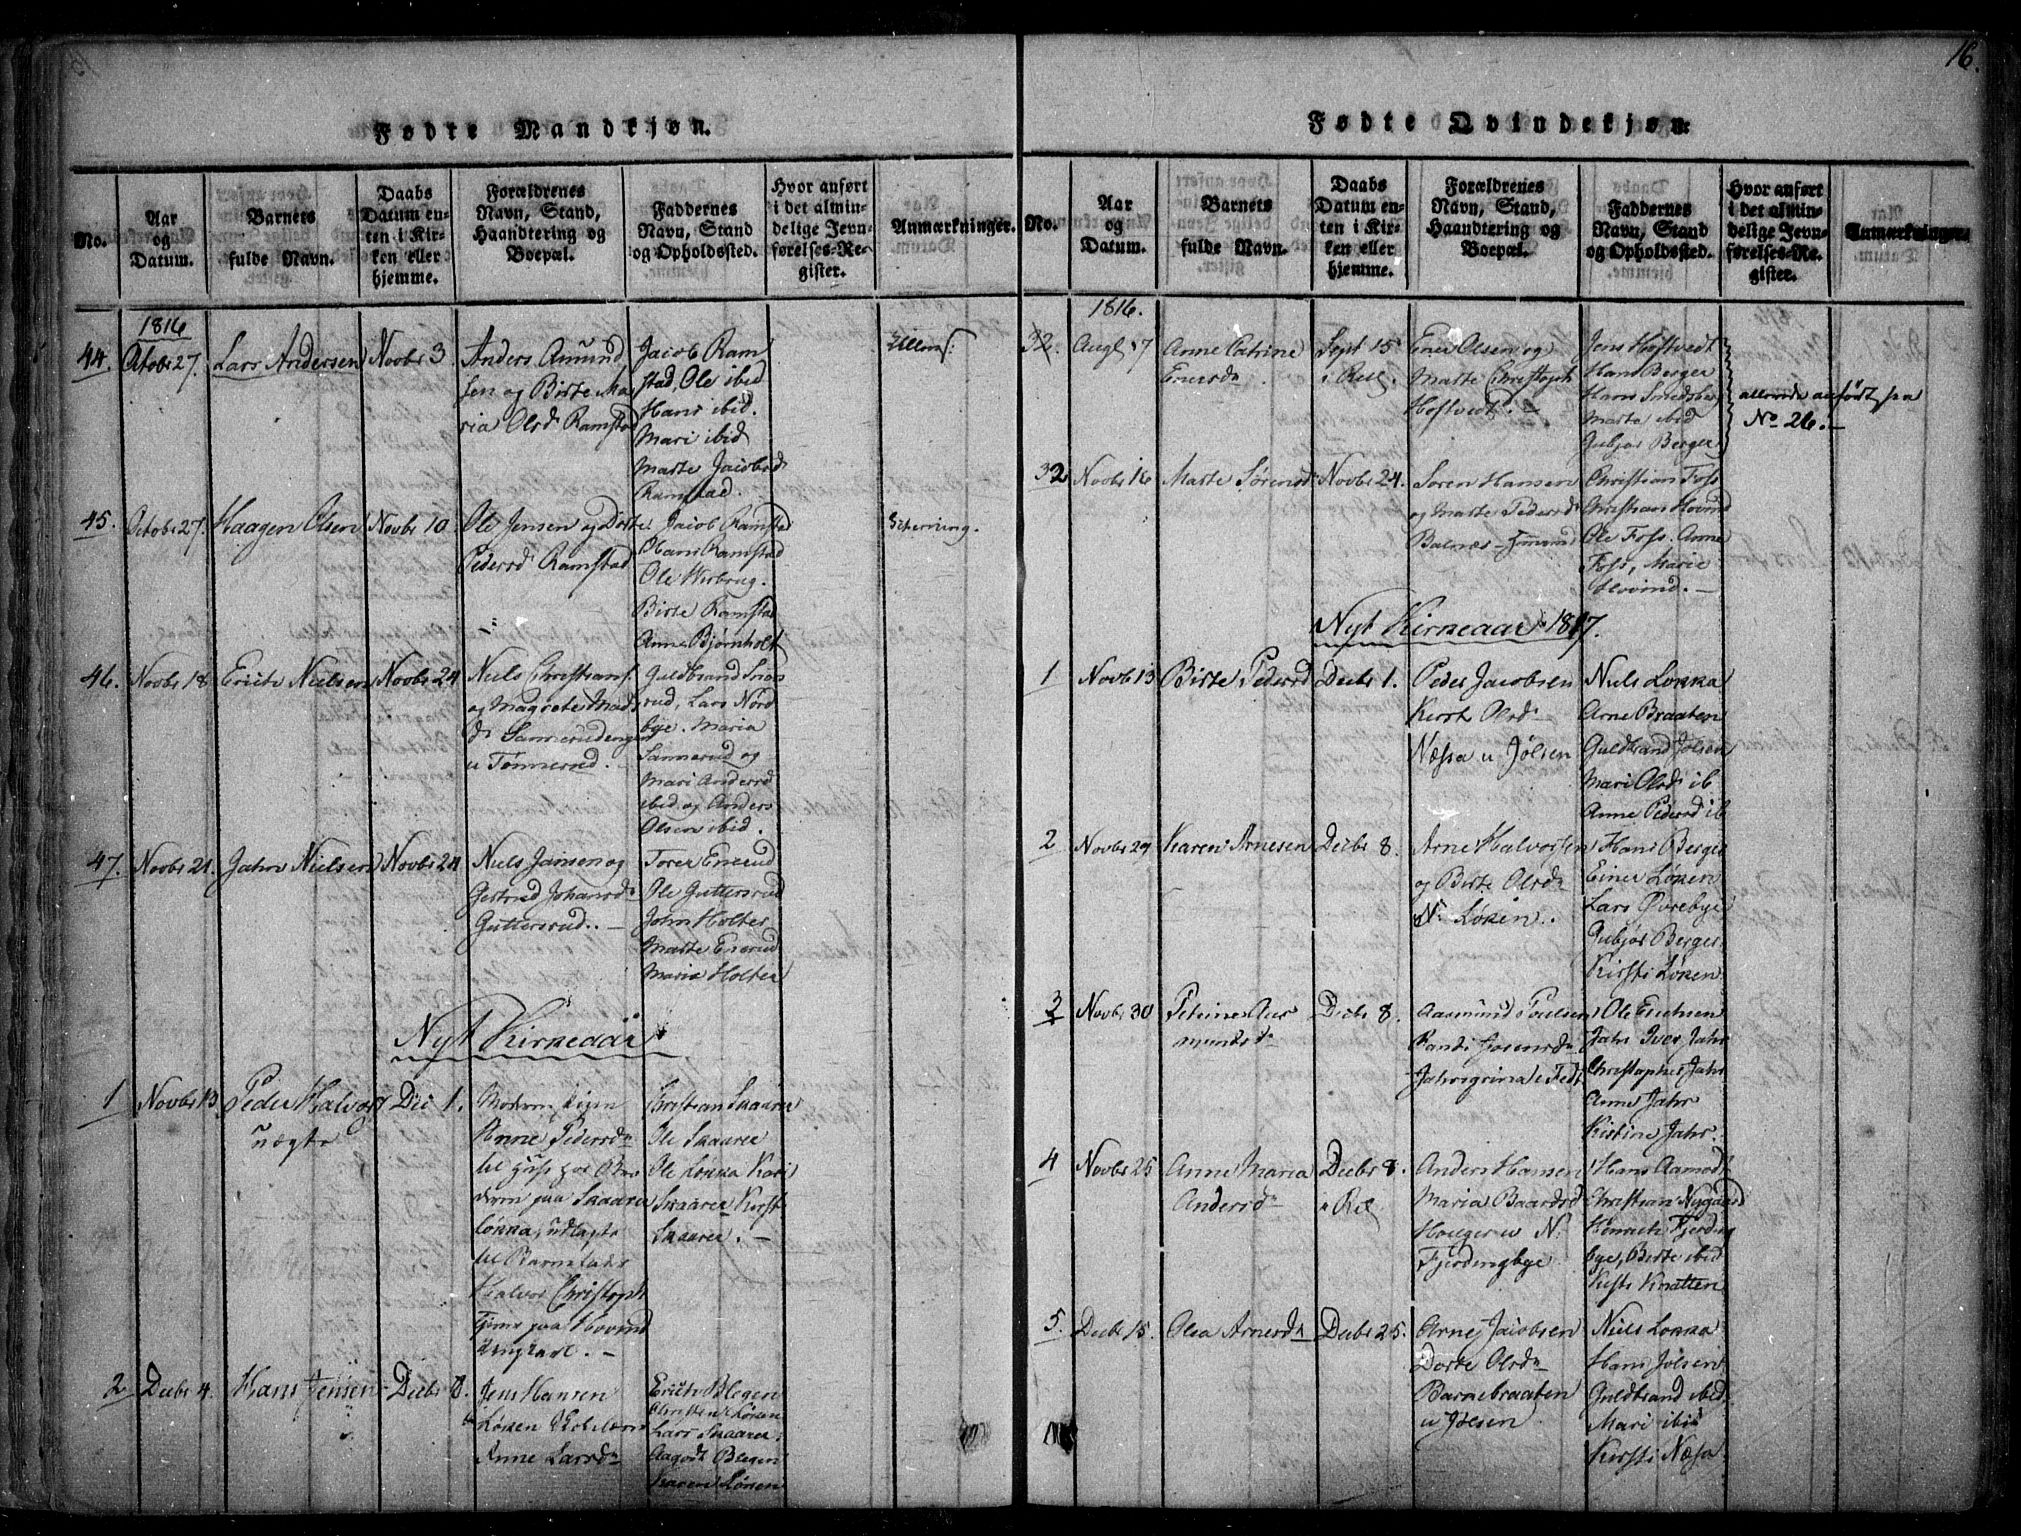 16.
Fødte Mandkjøn.
No.
Aar
og
Datum.
Barnets
fulde Navn.
Daabs
Datum en-
ten i Kir-
ken eller
hjemme.
Forældrenes
Navn, Stand,
Haandtering og
Boepæl.
Faddernes
Navn, Stand
og Opholdssted.
Hvor anført
i det almin-
delige Jevn-
førelses-Re-
gister.
Anmærkninger.
1816
44.
Octobr 27.
Lars Andersen
Novbr 3
Anders Amund
sen og Birte Ma
ria Olsd Ramstad
Jacob Ram
stad, Ole ibid
Hans ibid.
Mari ibid
Marte Jacobsd
Ramstad.
45.
Octobr 27.
Haagen Olsen
Novbr 10
Ole Jensen og Dorte
Pedersd Ramstad
Jacob Ramstad
Hans Ramstad
Ole Werbrug.
Birte Ramstad
Anne Bjørnholt
46.
Novbr 18
Erich Nielsen
Novbr 24
Niels Christians.
og Magrete Mads
d. Sannerudengen
u Tønnerud.
Guldbrand
rud, Lars Nord
bye. Maria
Sannerud og
Mari Andersd
ibid og Anders
Olsen ibid.
47.
Novbr 21.
Jahn Nielsen
Novbr 24
Niels Jansen og
Gertrud Johansd
Guttersrud.
Torer Enerud
Ole Guttersrud
John Holter
Marte Enerud
Maria Holter
Nyt Kirkeaar
1
Novbr 13
Peder Halvors
uægte
Dec 1.
Moderen Pigen
Anne Pedersd
til huse hos Bro
deren paa Skaarer
Løkka, udlagte
til Barnefader
Halvor Christoph
Tjener paa Hovind
Christian Skaarer
Ole Skaarer
Ole Løkka Kari
Skaarer Kirst
Skaarer.
2
Decbr 4.
Hans Jensen
Decbr 8.
Jens Hansen
Løken
Anne Larsd
Erich Blegen
Christen Løken
Lars Skaarer.
Aagodt Blegen
Karen Løken
Fødte Qvindekjøn.
No.
Aar
og
Datum.
Barnets
fulde Navn.
Daabs
Datum en-
ten i Kir-
ken eller
hjemme.
Forældrenes
Navn, Stand,
Haandtering og
Boepæl.
Faddernes
Navn, Stand
og Opholdssted.
Hvor anført
i det almin-
delige Jevn-
førelses-Re-
gister.
Anmærkninger.
1816.
32.
Augt 17
Anne Catrine
Enersd
Sept 15
i Rel.
Ener Olsen og
Marte Christoph
Hoftvedt.
Jens Hoftvedt
Hans Berger
Hans Smedsber
Marte ibid
Gubjør Berger
allerede anført paa
No 26.
32
Novbr 16
Marte Sørensd
Novbr 24.
Søren Hansen
og Marte Pedersd
Balnes
Christian Foss
Christian Hovind
Ole Foss. Anne
Foss, Marie
Hovind.
Nyt Kirkeaar 1817.
1
Novb 13
Birte Pedersd
Decbr 1.
Peder Jacobsen
Kirst Olsd
Næssa u Jølsen
Niels Løkka
Arne Braaten
Guldbrand Jølsen
Mari Olsd ib
Anne Pedersd ib
2
Novbr 29
Karen Arnesen
Decbr 8.
Arne Halvorsen
og Birte Olsd
N. Løken.
Hans Berger
Einer Løken
Lars Øvrebye
Gubjør Berger
Kirsti Løken
3
Novbr 30
Petrine Aas
mundsd
Decbr 8.
Aasmund Poulsen
Randi
Jahrsgrina
Ole Erichsen
Jahr Iver Jahr
Christopher Jahr
Anne Jahr
Kistine Jahr.
4
Novbr 25
Anne Maria
Andersd
Decbr 8.
i Rel
Anders Hansen
Maria Baardsd
Hauger u N.
Fjerdingbye
Hans Aamodt
Christian Nygaard
Fjerding
bye, Birte ibid
Kirsti Knatten
5.
Decbr 15.
Olea Arnesd
Decbr 25.
Arne Jacobsen
Dorte Olsd
Barnebraaten
u Jølsen
Niels Løkka
Hans Jølsen
Guldbrand ibid
Mari ibid
Kirsti Næssa